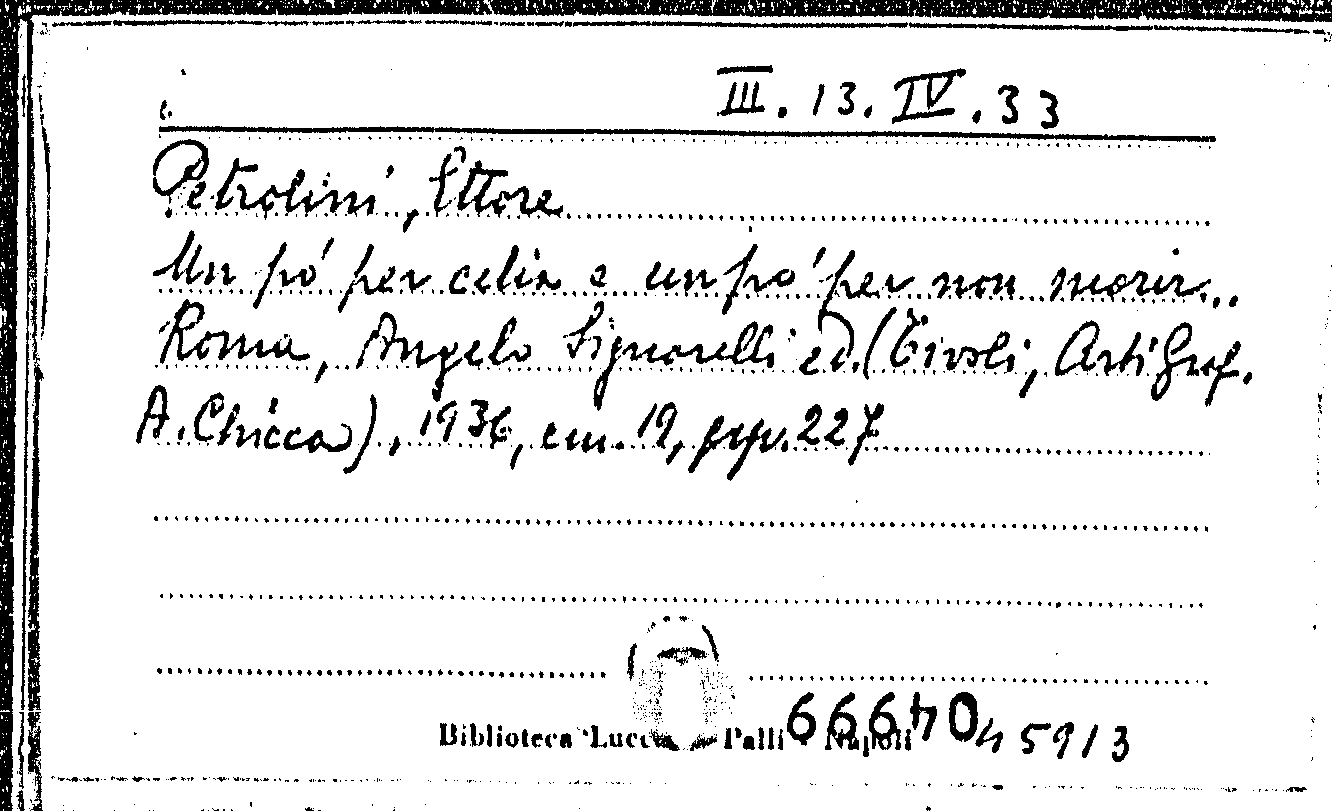 III. 13. IV. 33
Petrolini, Ettore
Un pó per celia e un pó per non morir...
Roma, Angelo Signorelli ed. (Tivoli, Arti Graf.
A. Chicca), 1936, cm. 19, pp. 227
Biblioteca "Lucc Palli - Napoli
45913